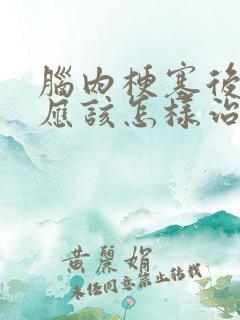 腦內梗塞後
應該怎樣治
黃麗娟
未經同意禁止轉載